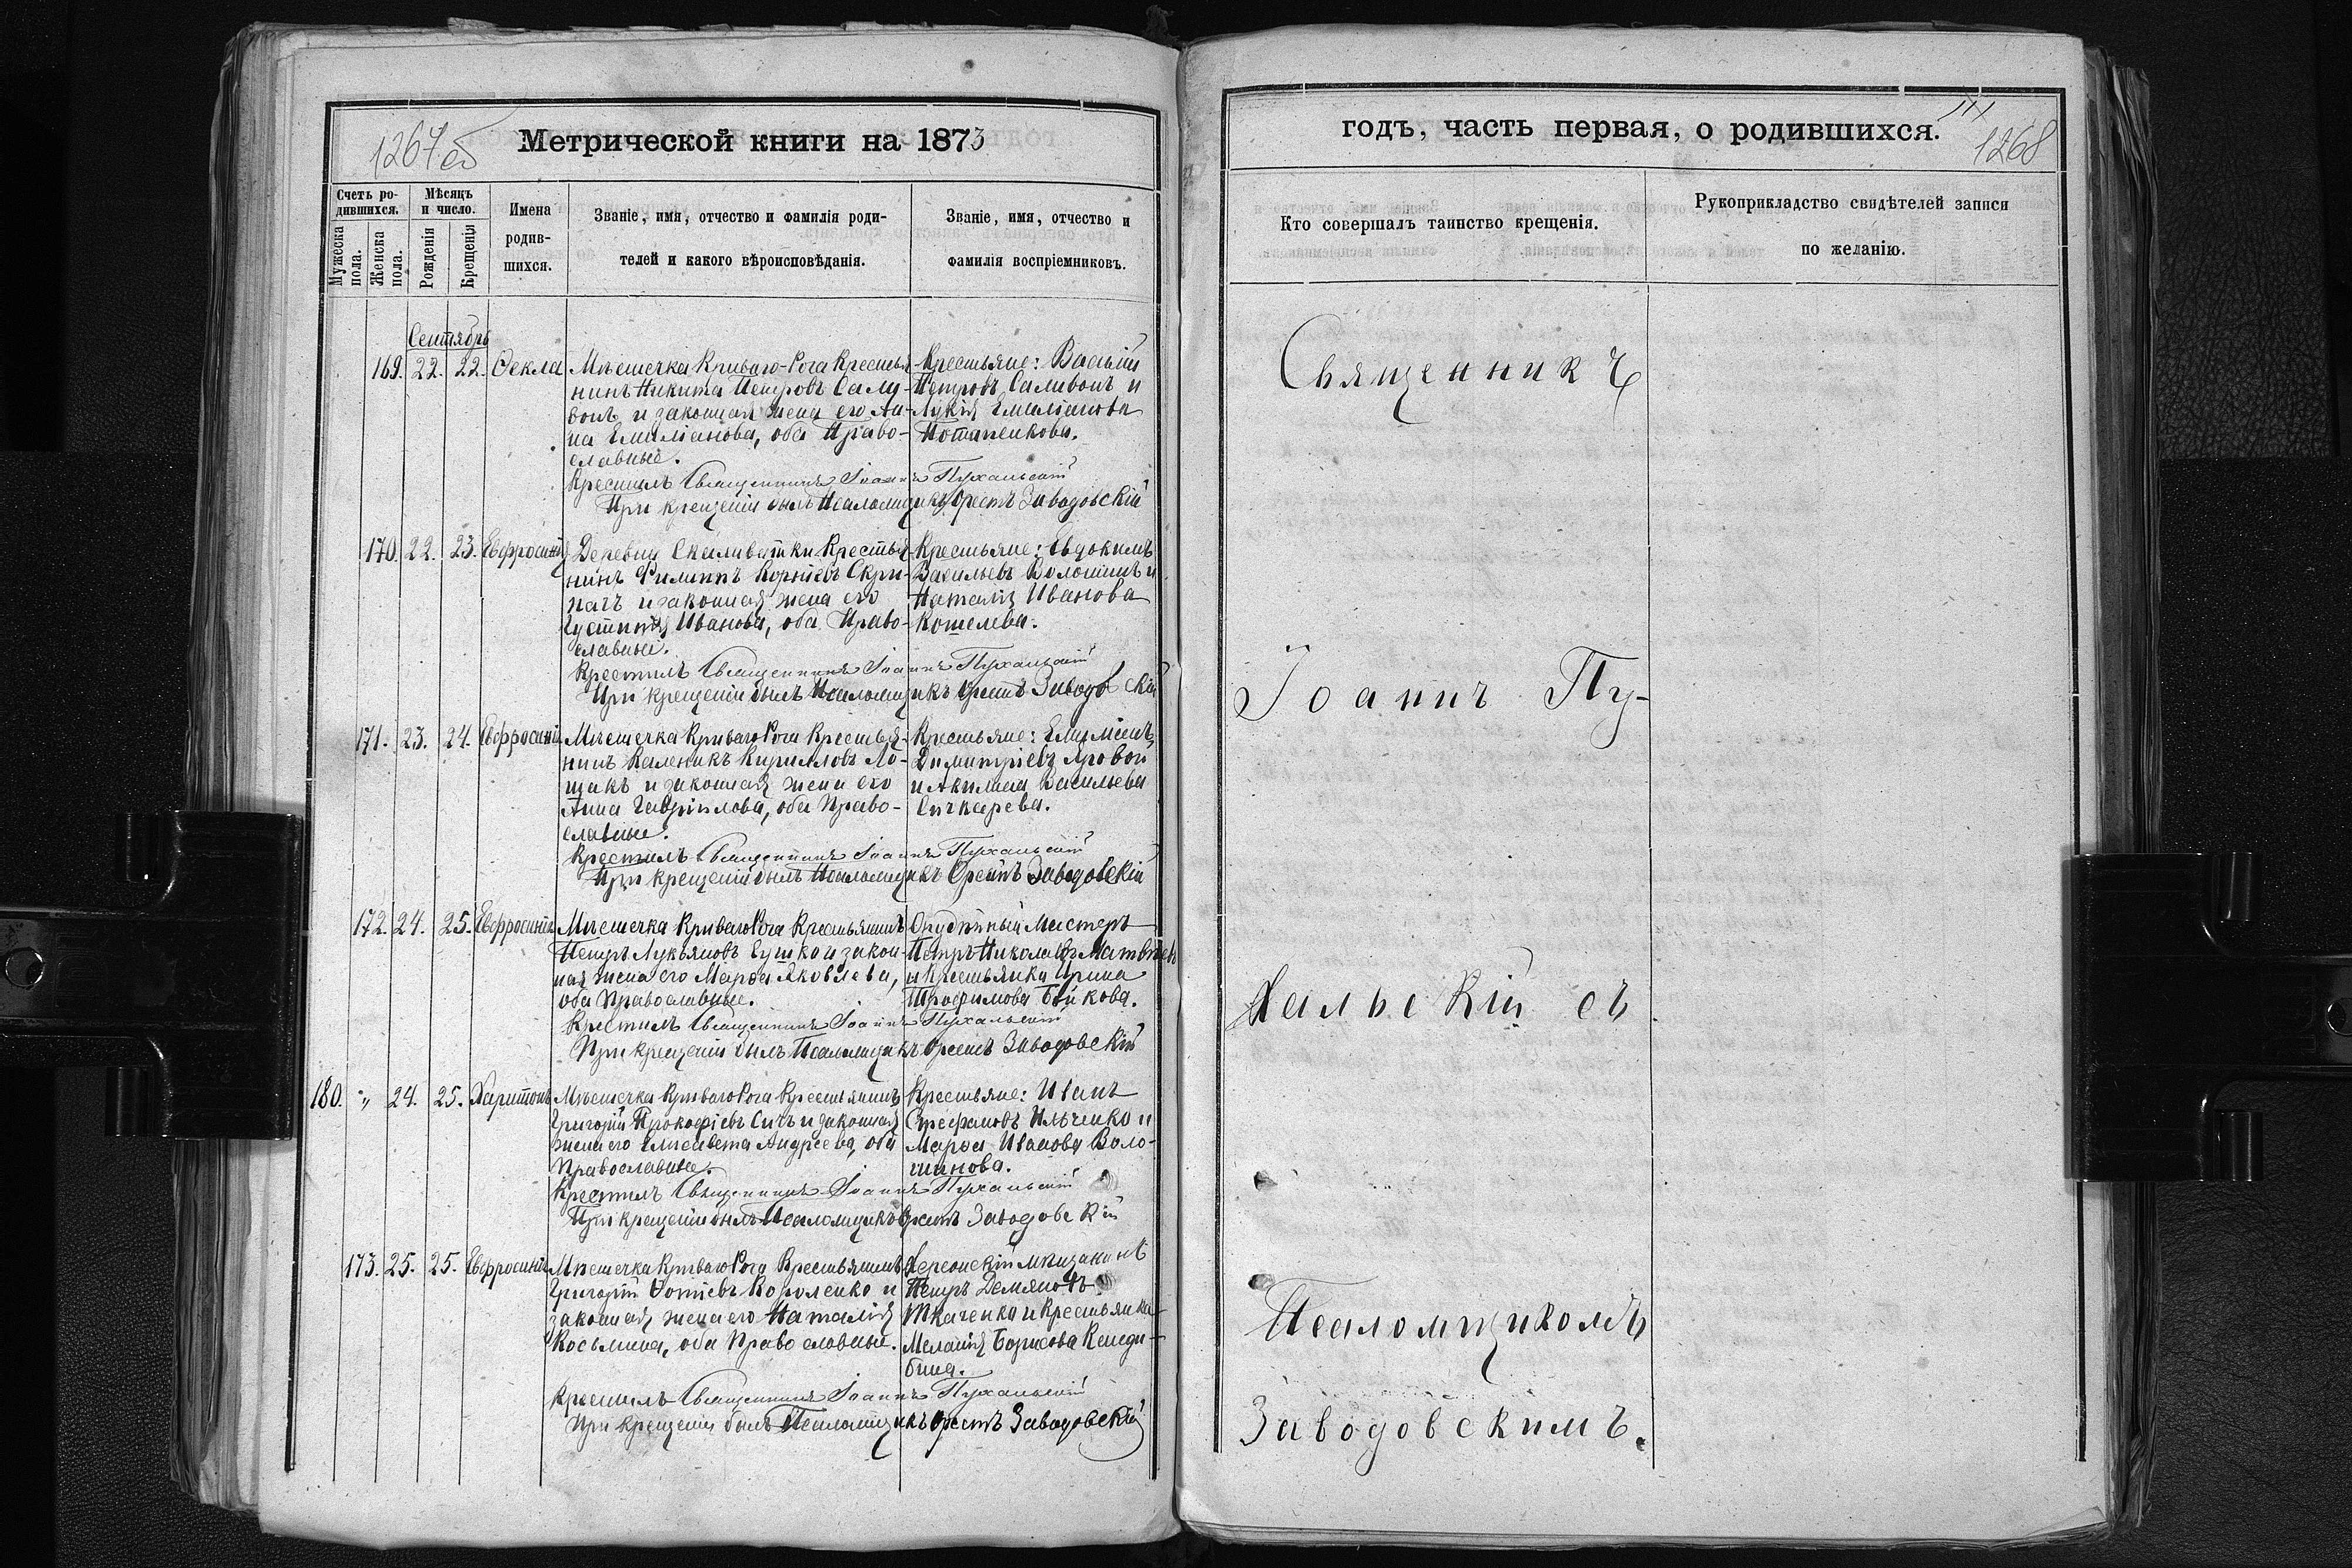 1267 об
Метрической книги на 1873
Счетъ ро-
дившихся.
Мужеска пола.
Женска пола.
Мѣсяцъ и число.
Рожденія
Крещенія
Имена родив-
шихся.
Званіе, имя, отчество и фамилія роди-
телей и какого вѣроисповѣданія.
Званіе, имя, отчество и
фамилія воспріемниковъ.
Сентябрь
169. 22. 22. Ѳекла
Мѣстечка Криваго-Рога Крестья-
нинъ Никита Петровъ Сали-
вонъ и законная жена его Ан-
на Емиліанова, оба Право-
славные.
Крестьяне: Василій
Петровъ Саливонъ и
Лукія Емиліанова
Потапенкова.
Крестилъ Священникъ Іоаннъ Пухальскій
При крещеніи былъ Псаломщикъ Орестъ Заводовскій
170. 22. 23. Евфросинія
Деревни Скаливатки Крестья-
нинъ Филиппъ Корніевъ Скри-
пачъ и законная жена его
Іустинія Иванова, оба Право-
славные.
Крестьяне: Евдокимъ
Васильевъ Волошинъ и
Наталія Иванова
Кошелева.
Крестилъ Священникъ Іоаннъ Пухальскій
При крещеніи былъ Псаломщикъ Орестъ Заводовскій
171. 23. 24. Евфросинія
Мѣстечка Криваго Рога Крестья-
нинъ Каленикъ Кирилловъ Ло-
щакъ и законная жена его
Анна Гавріилова, оба Право-
славные.
Крестьяне: Емиліанъ
Димитріевъ Яровой
и Акилина Васильева
Сичкарева.
Крестилъ Священникъ Іоаннъ Пухальскій
При крещеніи былъ Псаломщикъ Орестъ Заводовскій
172. 24. 25. Евфросинія
Мѣстечка Криваго Рога Крестьянинъ
Петръ Лукьяновъ Гушко и закон-
ная жена его Марѳа Яковлева,
оба Православные.
Мастеръ
Петръ Николаевъ Матвѣевъ
и Крестьянка Ирина
Трофимова Бойкова.
Крестилъ Священникъ Іоаннъ Пухальскій
При крещеніи былъ Псаломщикъ Орестъ Заводовскій
180. „ 24. 25. Харитонъ
Мѣстечка Криваго Рога Крестьянинъ
Григорій Прокофіевъ Сичъ и законная
жена его Елисавета Андреева, оба
Православные.
Крестьяне: Иванъ
Стефановъ Ильченко и
Марѳа Иванова Воло-
шинова.
Крестилъ Священникъ Іоаннъ Пухальскій
При крещеніи былъ Псаломщикъ Орестъ Заводовскій
173. 25. 25. Евфросинія
Мѣстечка Криваго Рога Крестьянинъ
Григорій Фотіевъ Короленко и
законная жена его Наталія
Косьмина, оба Православные.
Херсонскій мѣщанинъ
Петръ Демяновъ
Ткаченко и Крестьянка
Меланія Борисова
Крестилъ Священникъ Іоаннъ Пухальскій
При крещеніи былъ Псаломщикъ Орестъ Заводовскій
годъ, часть первая, о родившихся.
1268
Кто совершалъ таинство крещенія.
Рукоприкладство свидѣтелей записи
по желанію.
Священникъ
Іоаннъ Пу-
хальскій съ
Псаломщикомъ
Заводовскимъ.